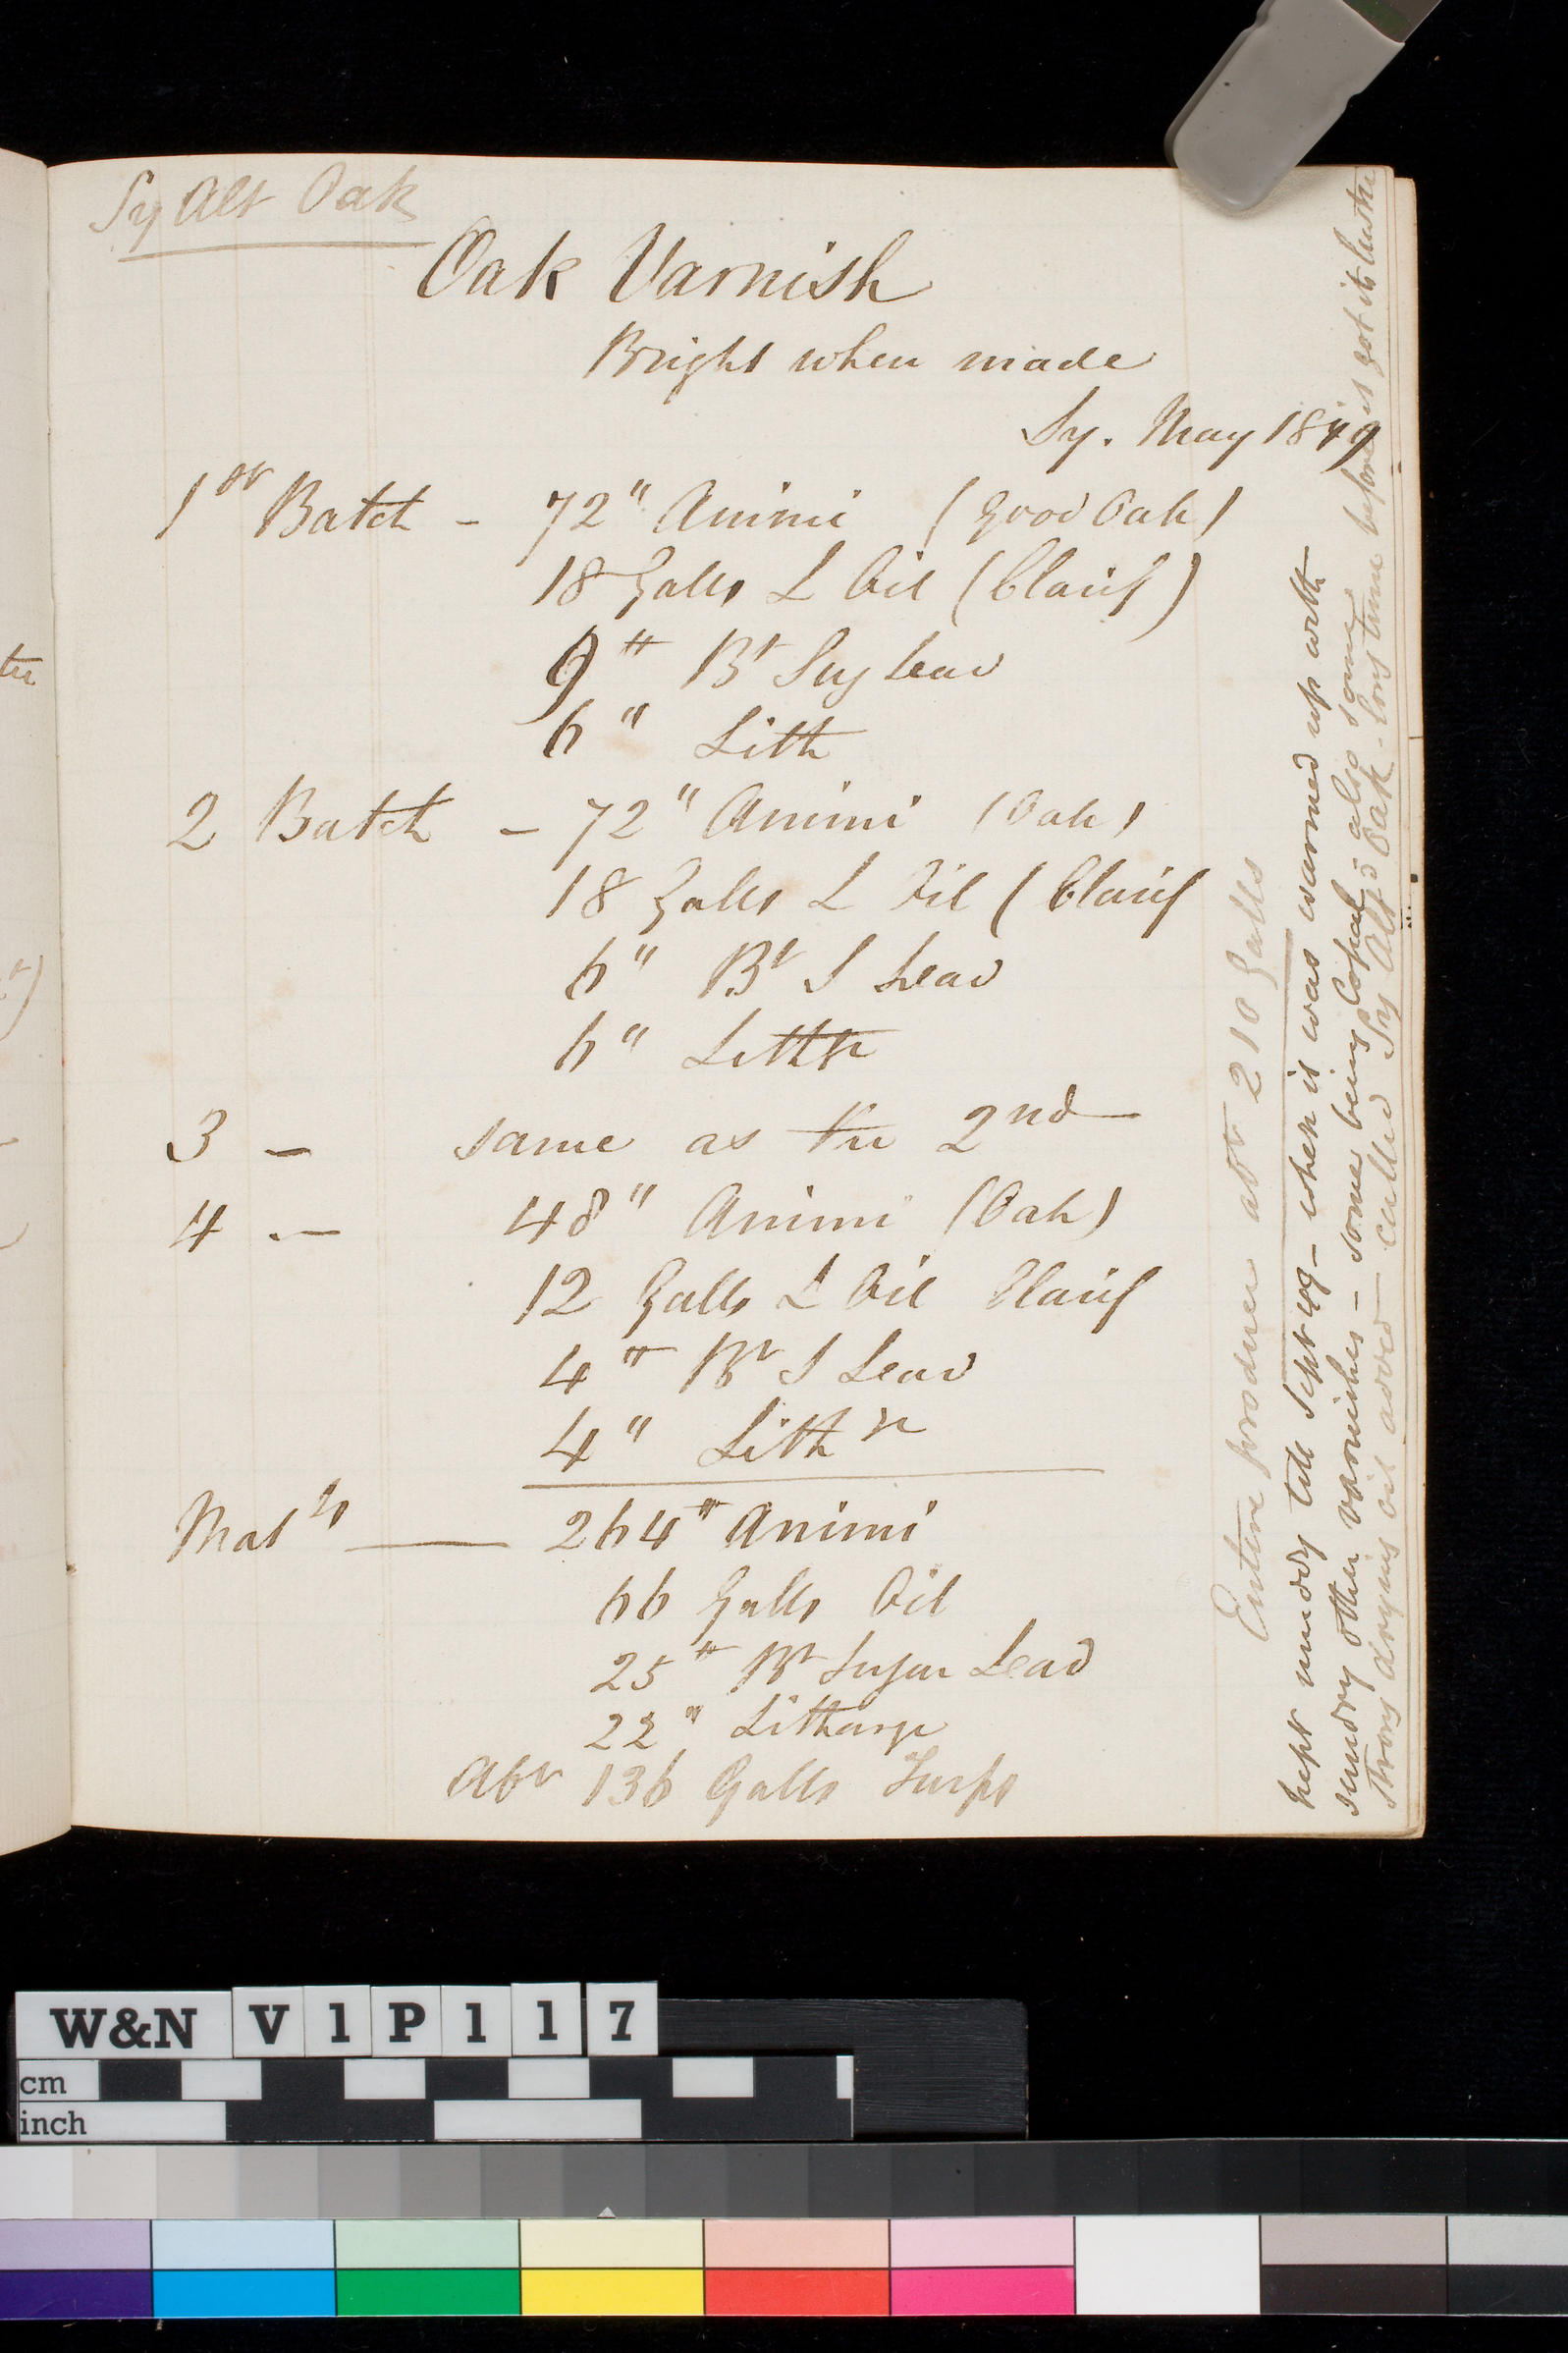 Sy Alt Oak
Oak Varnish
Bright when made
Sy. May 1849
1st Batch - 72" Animi (Good Oak)
18 Galls L Oil (Clarif)
9 " Bt Sug Lead
6 " Lith
2 Batch - 72" Animi (Oak)
18 Galls L Oil (Clarif
6" Bt S Lead
6" Lithre
3 - same as the 2nd
4 - 48" Animi (Oak)
12 Galls L Oil Clarif
4 " Bt S Lead
4 " Lith re
Matls 264" Animi
66 Galls Oil
25 " Bt Sugar Lead
22 " Litharge
Abt 136 Galls Turps
Entire produce abt 210 Galls
kept muddy till Sept 49 - when it was warmed up with
sundry other varnishes - some being Copal - also some
strong drying oil added - called Sy Altd Oak - long time before it got its lustre
tu
W&N V1P117
cm
inch